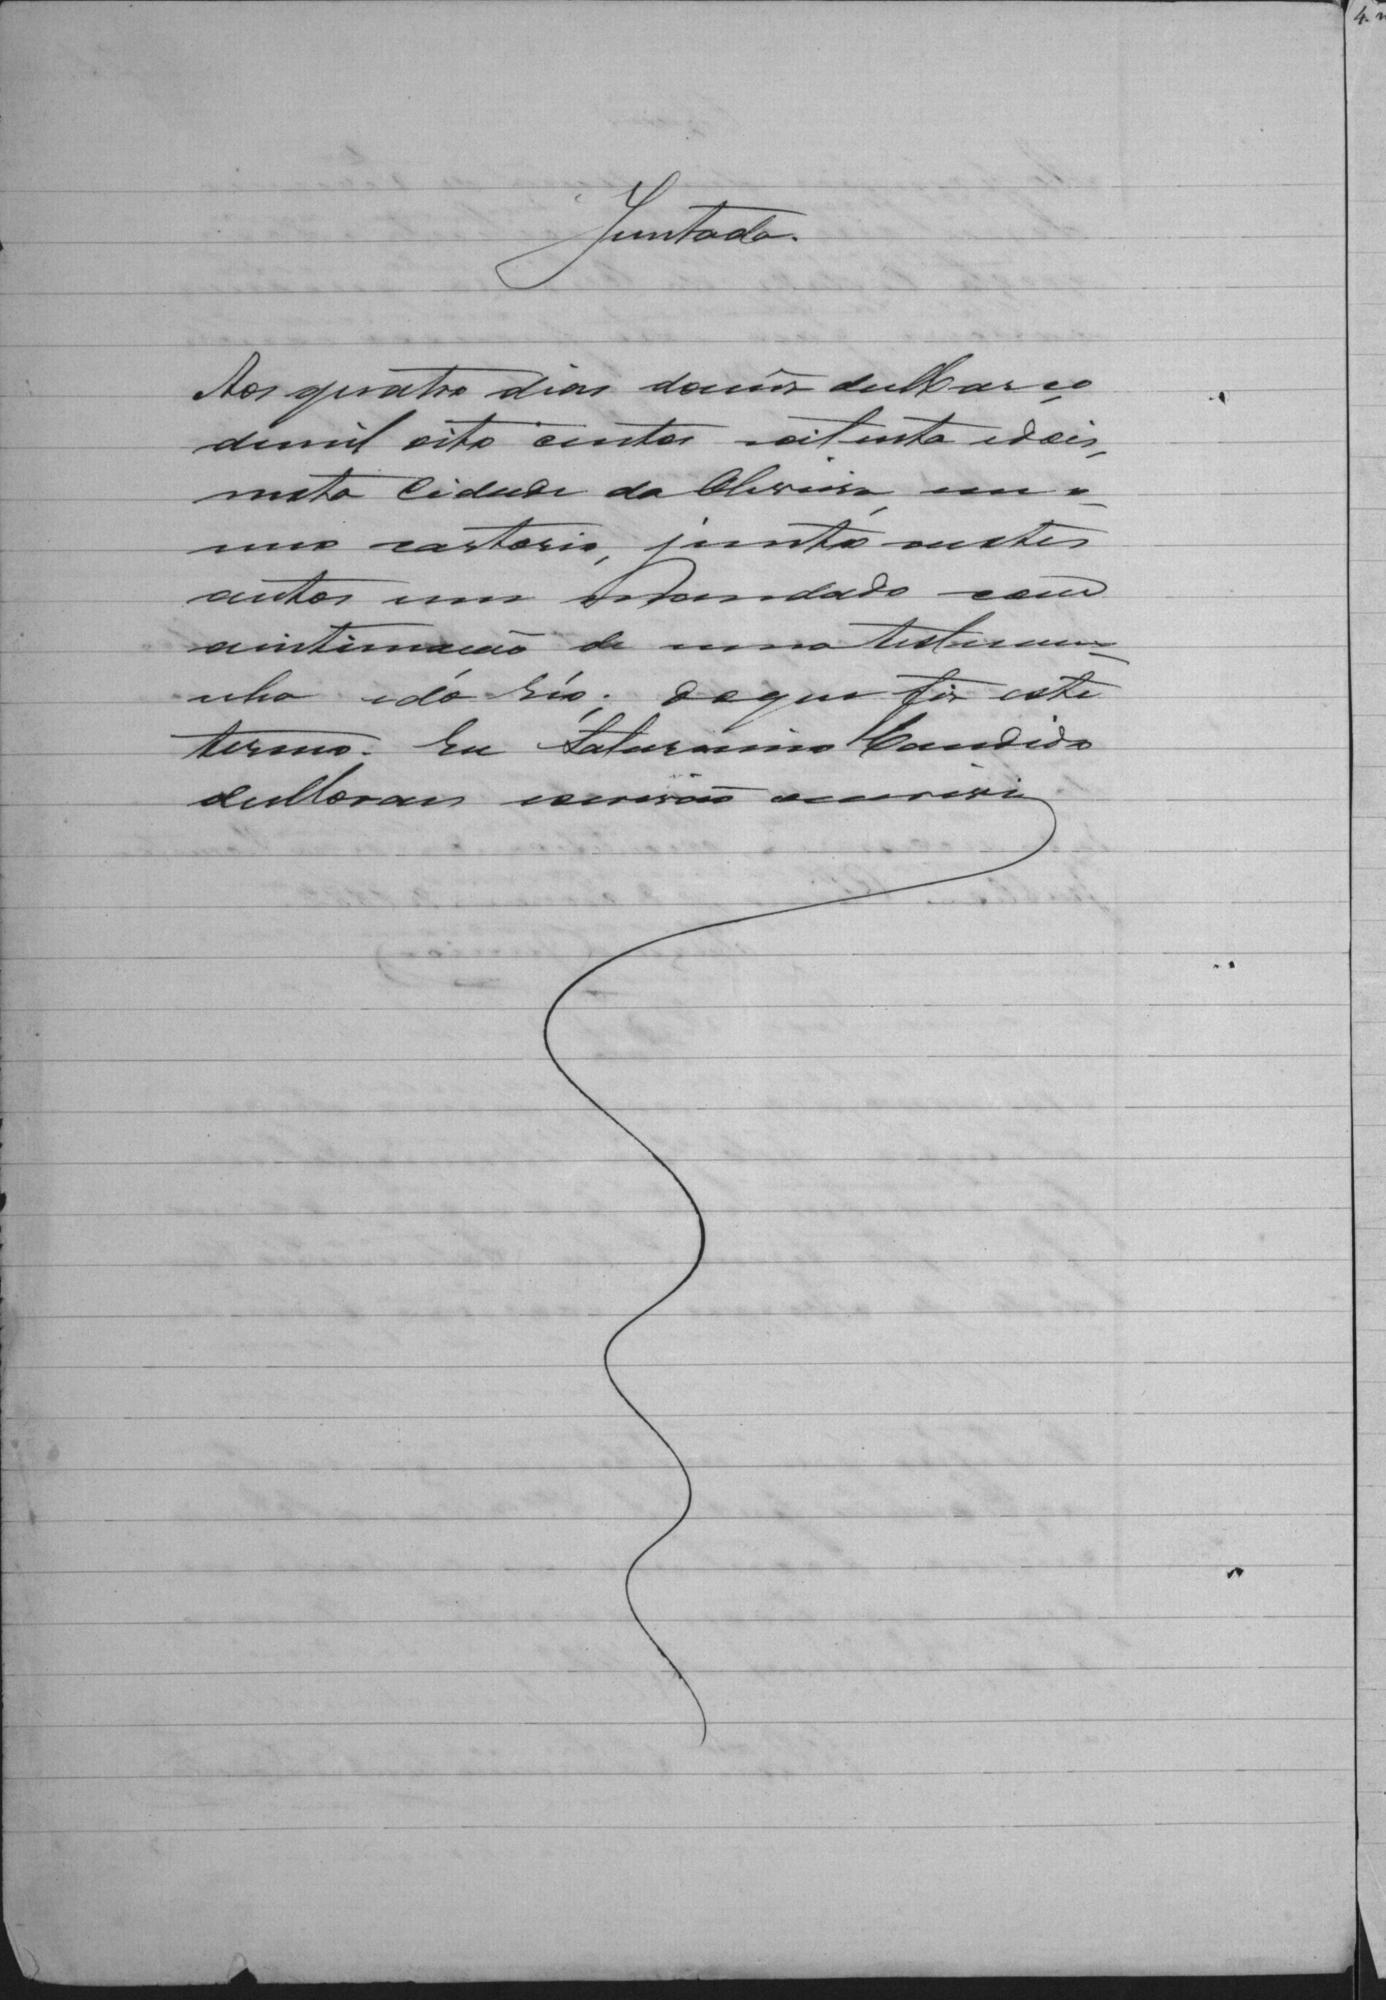 Juntada.
Aos quatro dias domês de Março
demil oito centos oitenta edois,
nesta Cidade da Oliveira, em o
meo cartorio, junto aestes
autos um Mandado com
aintimação de uma testemu-
nha edo Réo; doque fiz este
termo. Eu Saturnino Candido
de Moraes escrivão oescrevi